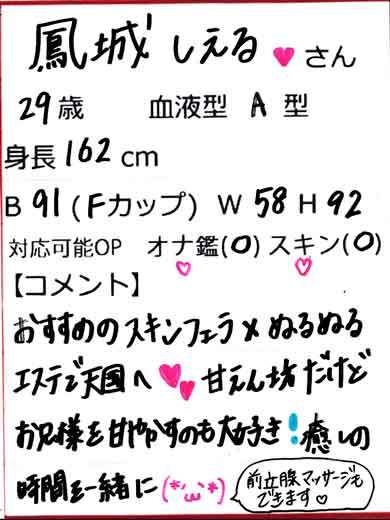 鳳城 しえる♥さん
29歳 血液型 A 型
身長 162 cm
B 91 (Fカップ) W 58 H 92
対応可能OP オナ鑑(O) スキン(O)
♡ ♡
【コメント】
おすすめのスキンフェラ×ぬるぬる
エステで天国へ♥♥甘えん坊だけど
お兄様を甘やかすのも大好き!癒しの
時間を一緒に(*'ω'*)
前立腺マッサージも
できます♡